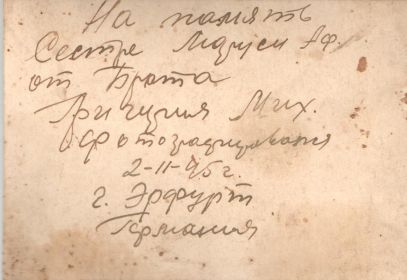 На память
Сестре Маруси Аф.
от Брата
Мих.
Фотографировался
2-11-45 г.
г. Эрфурт
Германия